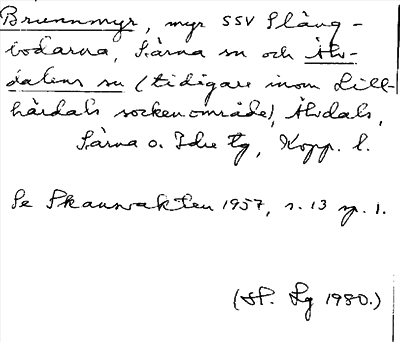 Brunnmyr, myr SSV Slång-
bodarna, Särna sn och Älv-
dalens sn (tidigare inom Lill-
härdals sockenområde), Älvdals,
Särna o. Idre tg, Kopp. l.
Se Skansvakten 1957, s. 13 sp. 1.
(SP. Lg 1980.)